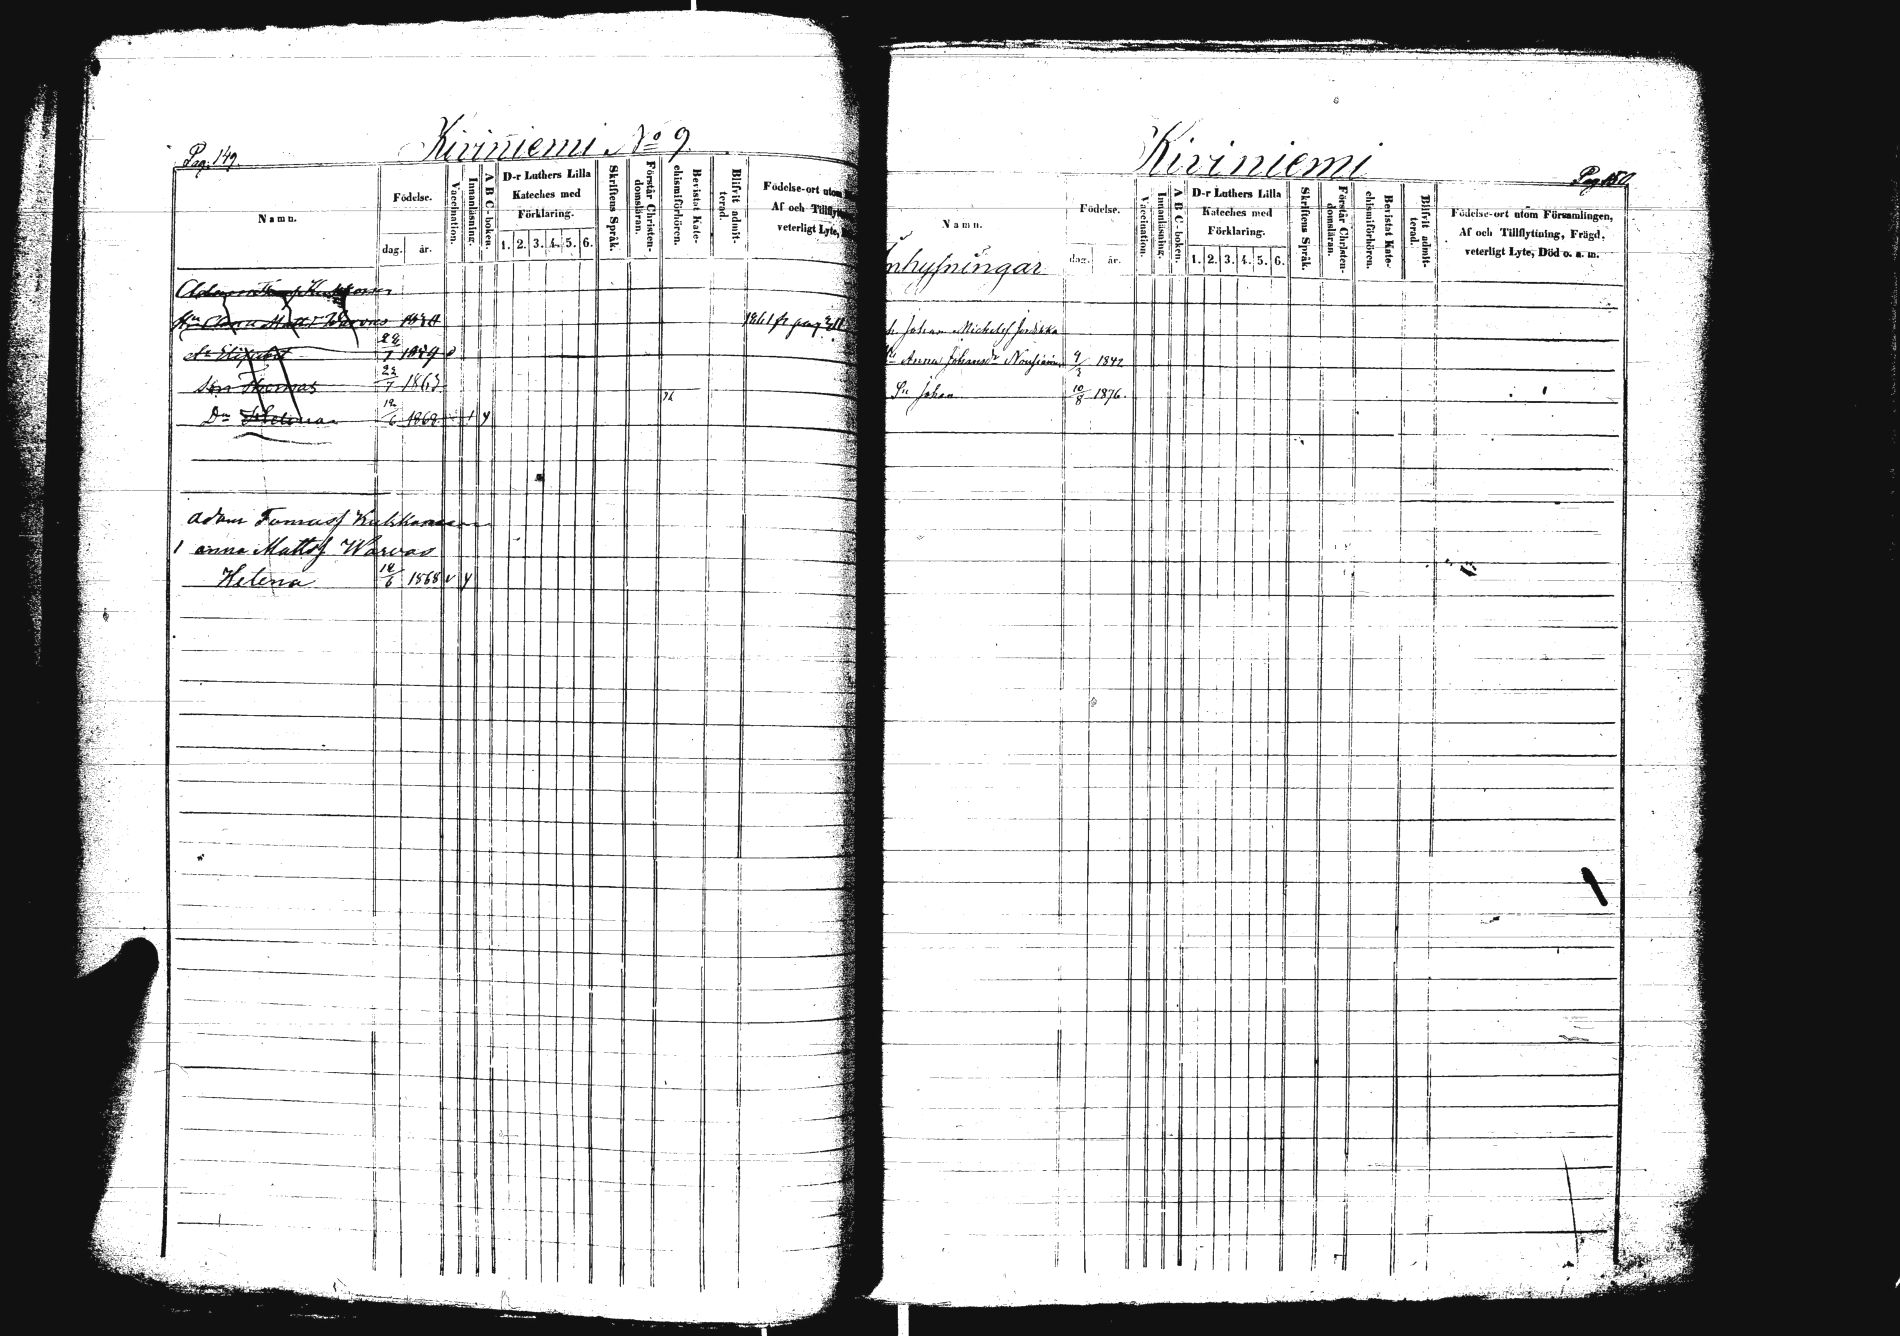 Pag. 149.
Kiviniemi No 9.
Namn.
Födelse.
dag. år.
Vaccination.
Innanläsning.
A B C-boken.
D-r Luthers Lilla
Kateches med
Förklaring.
1. 2. 3. 4. 5. 6.
Skriftens Språk.
Förstår Christen-
domsläran.
Bevistat Kate-
chismiförhören.
Blifvit admit-
terad.
Födelse-ort utom
Af och Tillflytt
veterligt Lyte,
Adam
Anna Matts Warvas
1861 fr pag
Elisabet
Son Thomas 22/7 1863
Dr Helena 12/6 1868 y
Adam Tomass Kukkonen
1 anna Matts Warvas
Helena 12/6 1868 v y
Kiviniemi
Pag 150
Namn.
Födelse.
dag. år.
Vaccination.
Innanläsning.
A B C-boken.
D-r Luthers Lilla
Kateches med
Förklaring.
1. 2. 3. 4. 5. 6.
Skriftens Språk.
Förstår Christen-
domsläran.
Bevistat Kate-
chismiförhören.
Blifvit admit-
terad.
Födelse-ort utom Församlingen,
Af och Tillflyttning, Frägd,
veterligt Lyte, Död o. a. m.
Inhysningar
Johan Michelss
Anna Johansdr Nousiainen 9/3 1842
Sn Johan 10/8 1876.